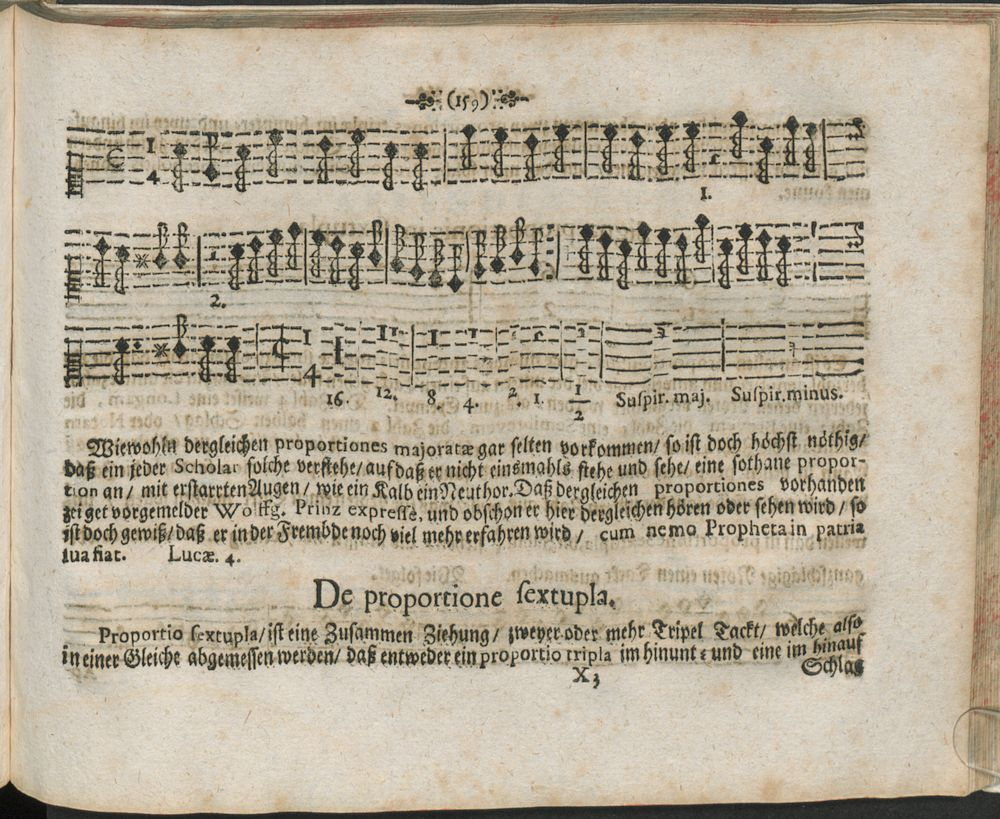 (159)
1
4
1.
2.
1
4
16. 12. 8 4. 2. 1. 1/2 Suspir. maj. Suspir. minus.
Wiewohln dergleichen proportiones majoratæ gar selten vorkommen/ so ist doch höchst nöthig/
daß ein jeder Scholar solche verstehe/ auf daß er nicht einsmahls stehe und sehe/ eine sothane propor-
tion an/ mit erstarrten Augen/ wie ein Kalb ein Neuthor. Daß dergleichen proportiones vorhanden
zeiget vorgemelder Wolffg. Prinz expresse, und obschon er hier dergleichen hören oder sehen wird/ so
ist doch gewiß/ daß er in der Frembde noch viel mehr erfahren wird/ cum nemo Propheta in patria
sua fiat. Lucæ. 4.
De proportione sextupla.
Proportio sextupla/ ist eine Zusammen Ziehung/ zweyer oder mehr Tripel Tackt/ welche also
in einer Gleiche abgemessen werden/ daß entweder ein proportio tripla im hinunt- und eine im hinauf
X3 Schlag